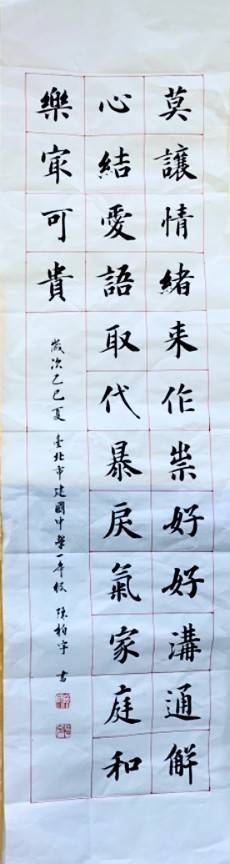 莫讓情緒来作祟好好溝通解
心結愛語取代暴戾氣家庭和
樂冣可貴
歲次乙巳夏臺北市建國中學一年級陳柏宇書